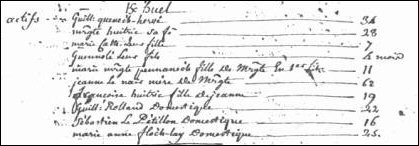 Ke huel
actifs - Guill: quencih-hervé 34
mvgte huitric sa fe 28
marie Cath. leur fille 7
Guennolé leurs fils 4 mois
marie mvgte quemaneih fille de Mvgte En 1er 11
jeanne le nair mère de Mvgte 62
françoise huitric fille de jeanne 19
Guill: Rolland Domestique 22
Sébastien Le Pétillon Domestique 16
marie anne floch-lay Domestique 25.